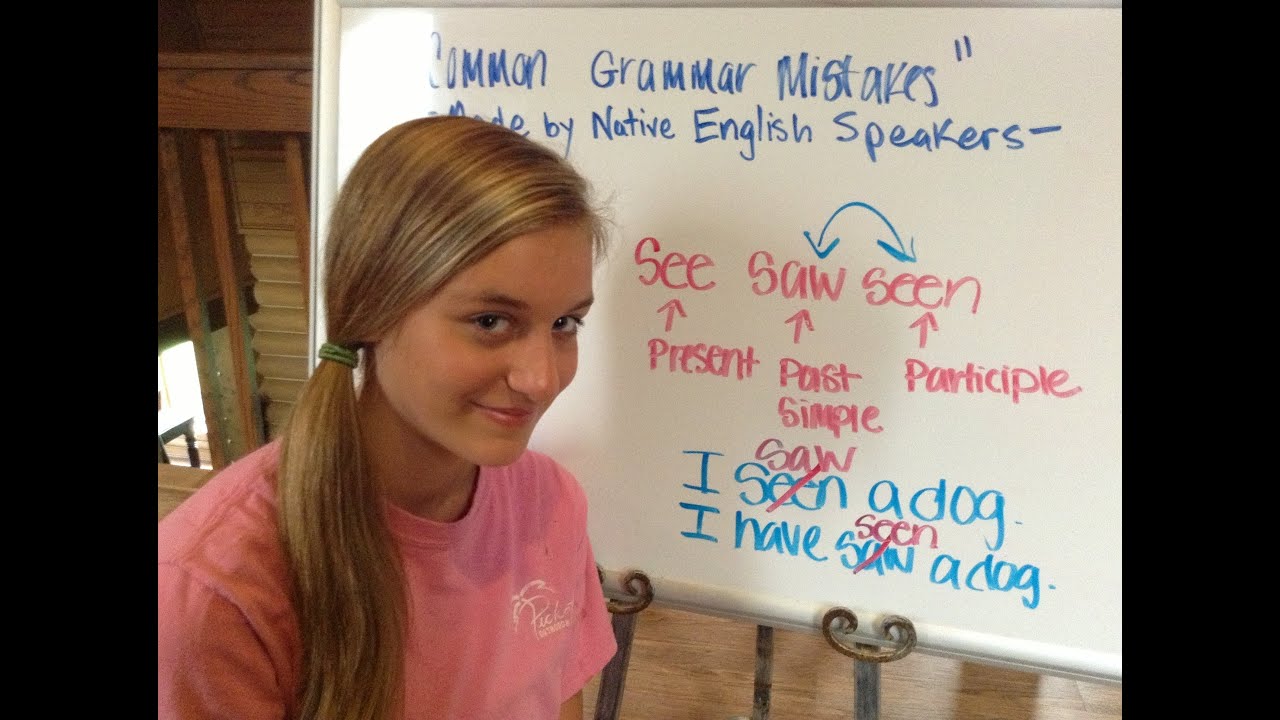 Common Grammar Mistakes"
Made by Native English Speakers-
See saw seen
Present Past Participle
Simple
saw
I seen a dog.
seen
I have saw a dog.